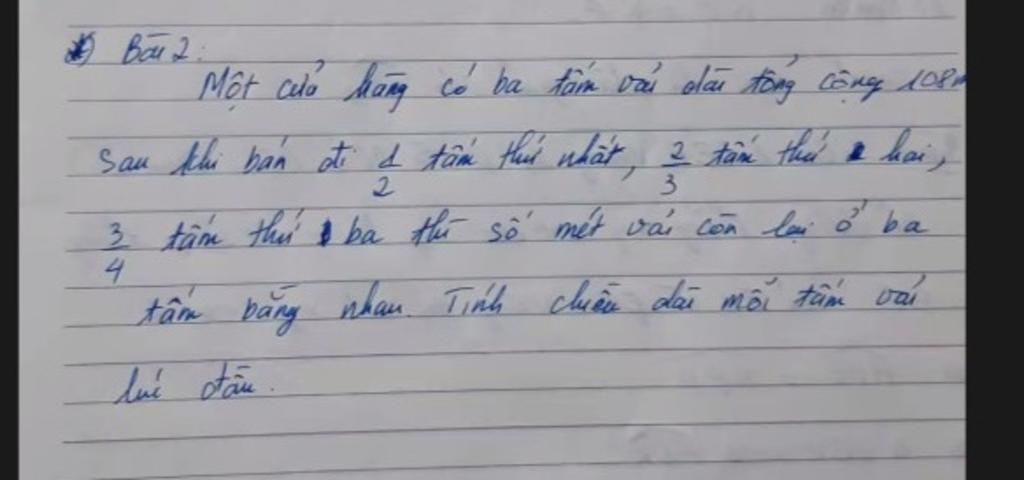 *) Bài 2:
Một cửa hàng có ba tấm vải dài tổng cộng 108m
Sau khi bán đi 1/2 tấm thứ nhất, 2/3 tấm thứ hai,
3/4 tấm thứ ba thì số mét vải còn lại ở ba
tấm bằng nhau. Tính chiều dài mỗi tấm vải
lúc đầu.